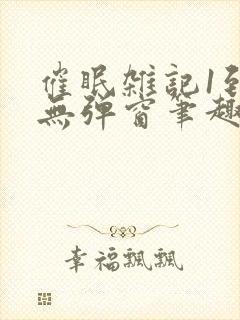 催眠雑記1到
無弹窗筆趣
幸福飄飄